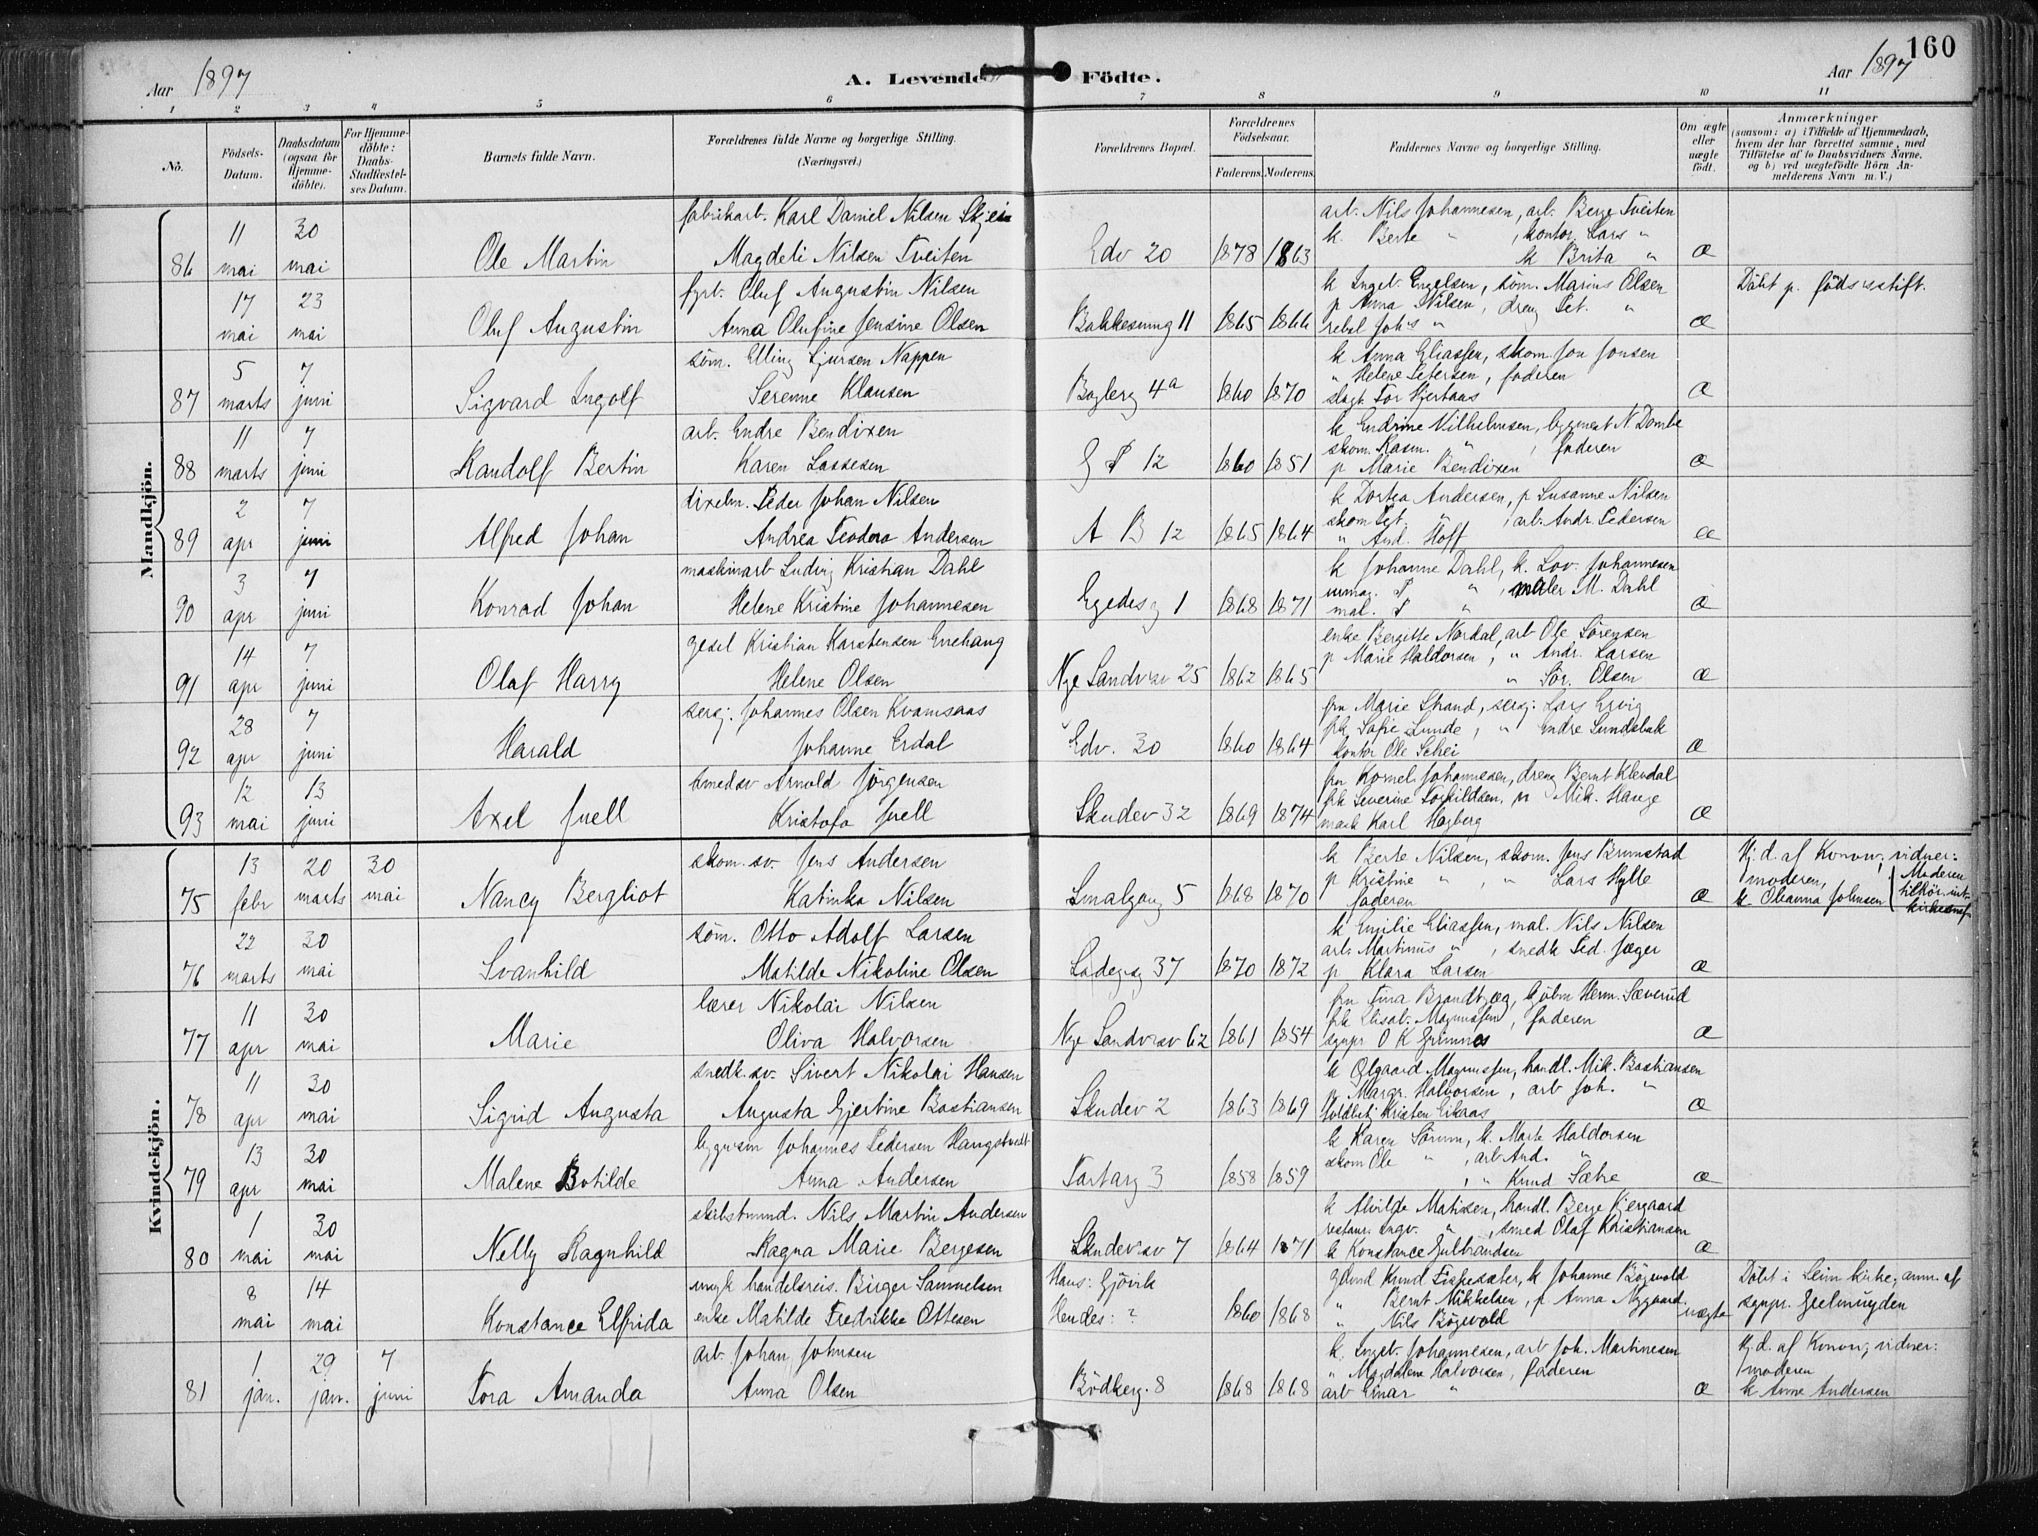 Aar 1897
A. Levende Födte.
Aar 1897
160
1 2 3 4 5 6 7 8 9 10 11
No.
Födsels-Datum.
Daabsdatum (ogsaa for Hjemmedöbte).
For Hjemmedöbte: Daabs-Stadfæstelses Datum.
Barnets fulde Navn.
Forældrenes fulde Navne og borgerlige Stilling. (Næringsvei.)
Forældrenes Bopæl.
Forældrenes Födselsaar.
Faderens. Moderens.
Faddernes Navne og borgerlige Stilling.
Om ægte eller uægte födt.
Anmærkninger (saasom: a) i Tilfælde af Hjemmedaab, hvem der har forrettet samme, med Tilföielse af to Daabsvidners Navne, og b) ved uægtefödte Börn Anmelderens Navn m. V.)
Mandkjön.
fabrikarb. Karl Daniel Nilsen Skjei
arb. Nils Johannesen, arb. Berge Tveiten
86 11 mai 30 mai Ole Martin Magdeli Nilsen Tveiten Edv 20 1878 1863 k. Berte " , kontor. Lars " æ
k Brita "
fyrb. Oluf Augustin Nilsen
k Ingeb. Engelsen, søm. Marius Olsen
Döbt p. fødselsstift.
17 mai 23 mai Oluf Augustin Anna Olufine Jensine Olsen Bakkesmug 11 1865 1866 p Anna Nilsen, dreng Pet. " æ
søm. Elling Sjursen Nappen
k Anna Eliassen, skom. Jon Jonsen
87 5 marts 7 juni Sigvard Ingolf Serenne Klausen Baglerg 4a 1860 1870 " Helene Petersen, faderen æ
slagt. Tor Hjertaas
arb. Endre Bendixen
k Endrine Vilhelmsen, bygmest N Dambe
88 11 marts 7 juni Randolf Bertin Karen Lassesen G P 12 1860 1851 skom. Rasm. " , faderen æ
p Marie Bendixen
Peder Johan Nilsen
k Dortea Andersen, p Susanne Nilsen
89 2 apr 7 juni Alfred Johan Andrea Teodora Andersen A B 12 1865 1864 skom Pet. " , arb. Andr. Pedersen æ
" And. Hoff
maskinarb Ludvig Kristian Dahl
k Johanne Dahl, k. Lov. Johannesen
90 3 apr 7 juni Konrad Johan Helene Kristine Johannesen Egedesg 1 1868 1871 " , maler M. Dahl æ
mal. P "
gesel Kristian Karstensen Enehaug
enke Bergitte Nordal, arb Ole Sørensen
91 14 apr 7 juni Olaf Harry Helene Olsen Nye Sandvsv 25 1862 1865 p Marie Haldorsen, " Andr. Larsen æ
" Sør. Olsen
sersj. Johannes Olsen Kvamsaas
fru Marie Strand, sersj. Lars Ervig
92 28 apr 7 juni Harald Johanne Erdal Edv. 30 1860 1864 frk Sofie Lunde, " Endre Sundsbak æ
kontor Ole Schei
smedsv Arnold Jørgensen
fru Kornel. Johannesen, dreng Bernt Klendal
93 12 mai 13 juni Axel Juell Kristofa Juell Skudev 32 1869 1874 frk Severine Torkildsen, " Mik. Hauge æ
mask Karl Hagberg
Kvindekjön.
skom. sv. Jens Andersen
k Berte Nilsen, skom. Jens Brunstad
Hj. d. af Konow; vidner:
75 13 febr 20 marts 30 mai Nancy Bergliot Katinka Nilsen Smalgang 5 1868 1870 p Kristine " , " Lars Hylle æ moderen,
faderen
k Oleanna Johnsen
søm. Otto Adolf Larsen
k Emilie Eliassen, mal. Nils Nilsen
76 22 marts 30 mai Svanhild Matilde Nikoline Olsen Ladegg 37 1870 1872 arb. Martinus " , snedk Ped. Jæger æ
p Klara Larsen
lærer Nikolai Nilsen
fru Tina Brandtzæg, Herm. Sæverud
77 11 apr 30 mai Marie Oliva Halvorsen Nye Sandvsv 62 1861 1854 frk Elisab. Magnussen, faderen æ
sgnpr O K Grimnes
snedk. sv. Sivert Nikolai Hansen
k Olgaard Magnussen, handl. Mik. Bastiansen
78 11 apr 30 mai Sigrid Augusta Augusta Gjertine Bastiansen Skudev 2 1863 1869 p Margr. Halvorsen, arb Joh. " æ
Kristen Eikaas
bygnsm Johannes Pedersen Haugstvedt
k Karen Sørum, k. Marte Haldorsen
79 13 apr 30 mai Malene Botilde Anna Andersen Tartarg 3 1858 1859 skom Ole " , arb And. " æ
, " Knud Sætre
skibstmmd. Nils Martin Andersen
k Alvilde Matisen, handl. Berge Kjergaard
80 1 mai 30 mai Nelly Ragnhild Ragna Marie Bergesen Skudevsv 7 1864 1871 restaur. Ingv. " , smed Olaf Kristiansen æ
k Konstance Gulbrandsen
ungk handelsreis. Birger Samuelsen
Hans: Gjövik
gdmd Knud Fiskesæter, k Johanne Bøgevold
Döbt i Leim kirke; anm. af
8 mai 14 mai Konstance Elfrida enke Matilde Fredrikke Ottesen Hendes: ? 1860 1868 " Bernt Mikkelsen, p Anna Nygaard uægte sgnpr. Geelmuyden
" Nils Bøgevold
arb. Johan Johnsen
k. Ingeb. Johannesen, arb Joh. Martinesen
Hj. d. af Konow; vidner:
81 1 jan. 29 jan. 7 juni Tora Amanda Anna Olsen Bödkerg. 8 1868 1868 " Magdalene Halvorsen, faderen æ moderen
arb Einar "
k Anne Andersen